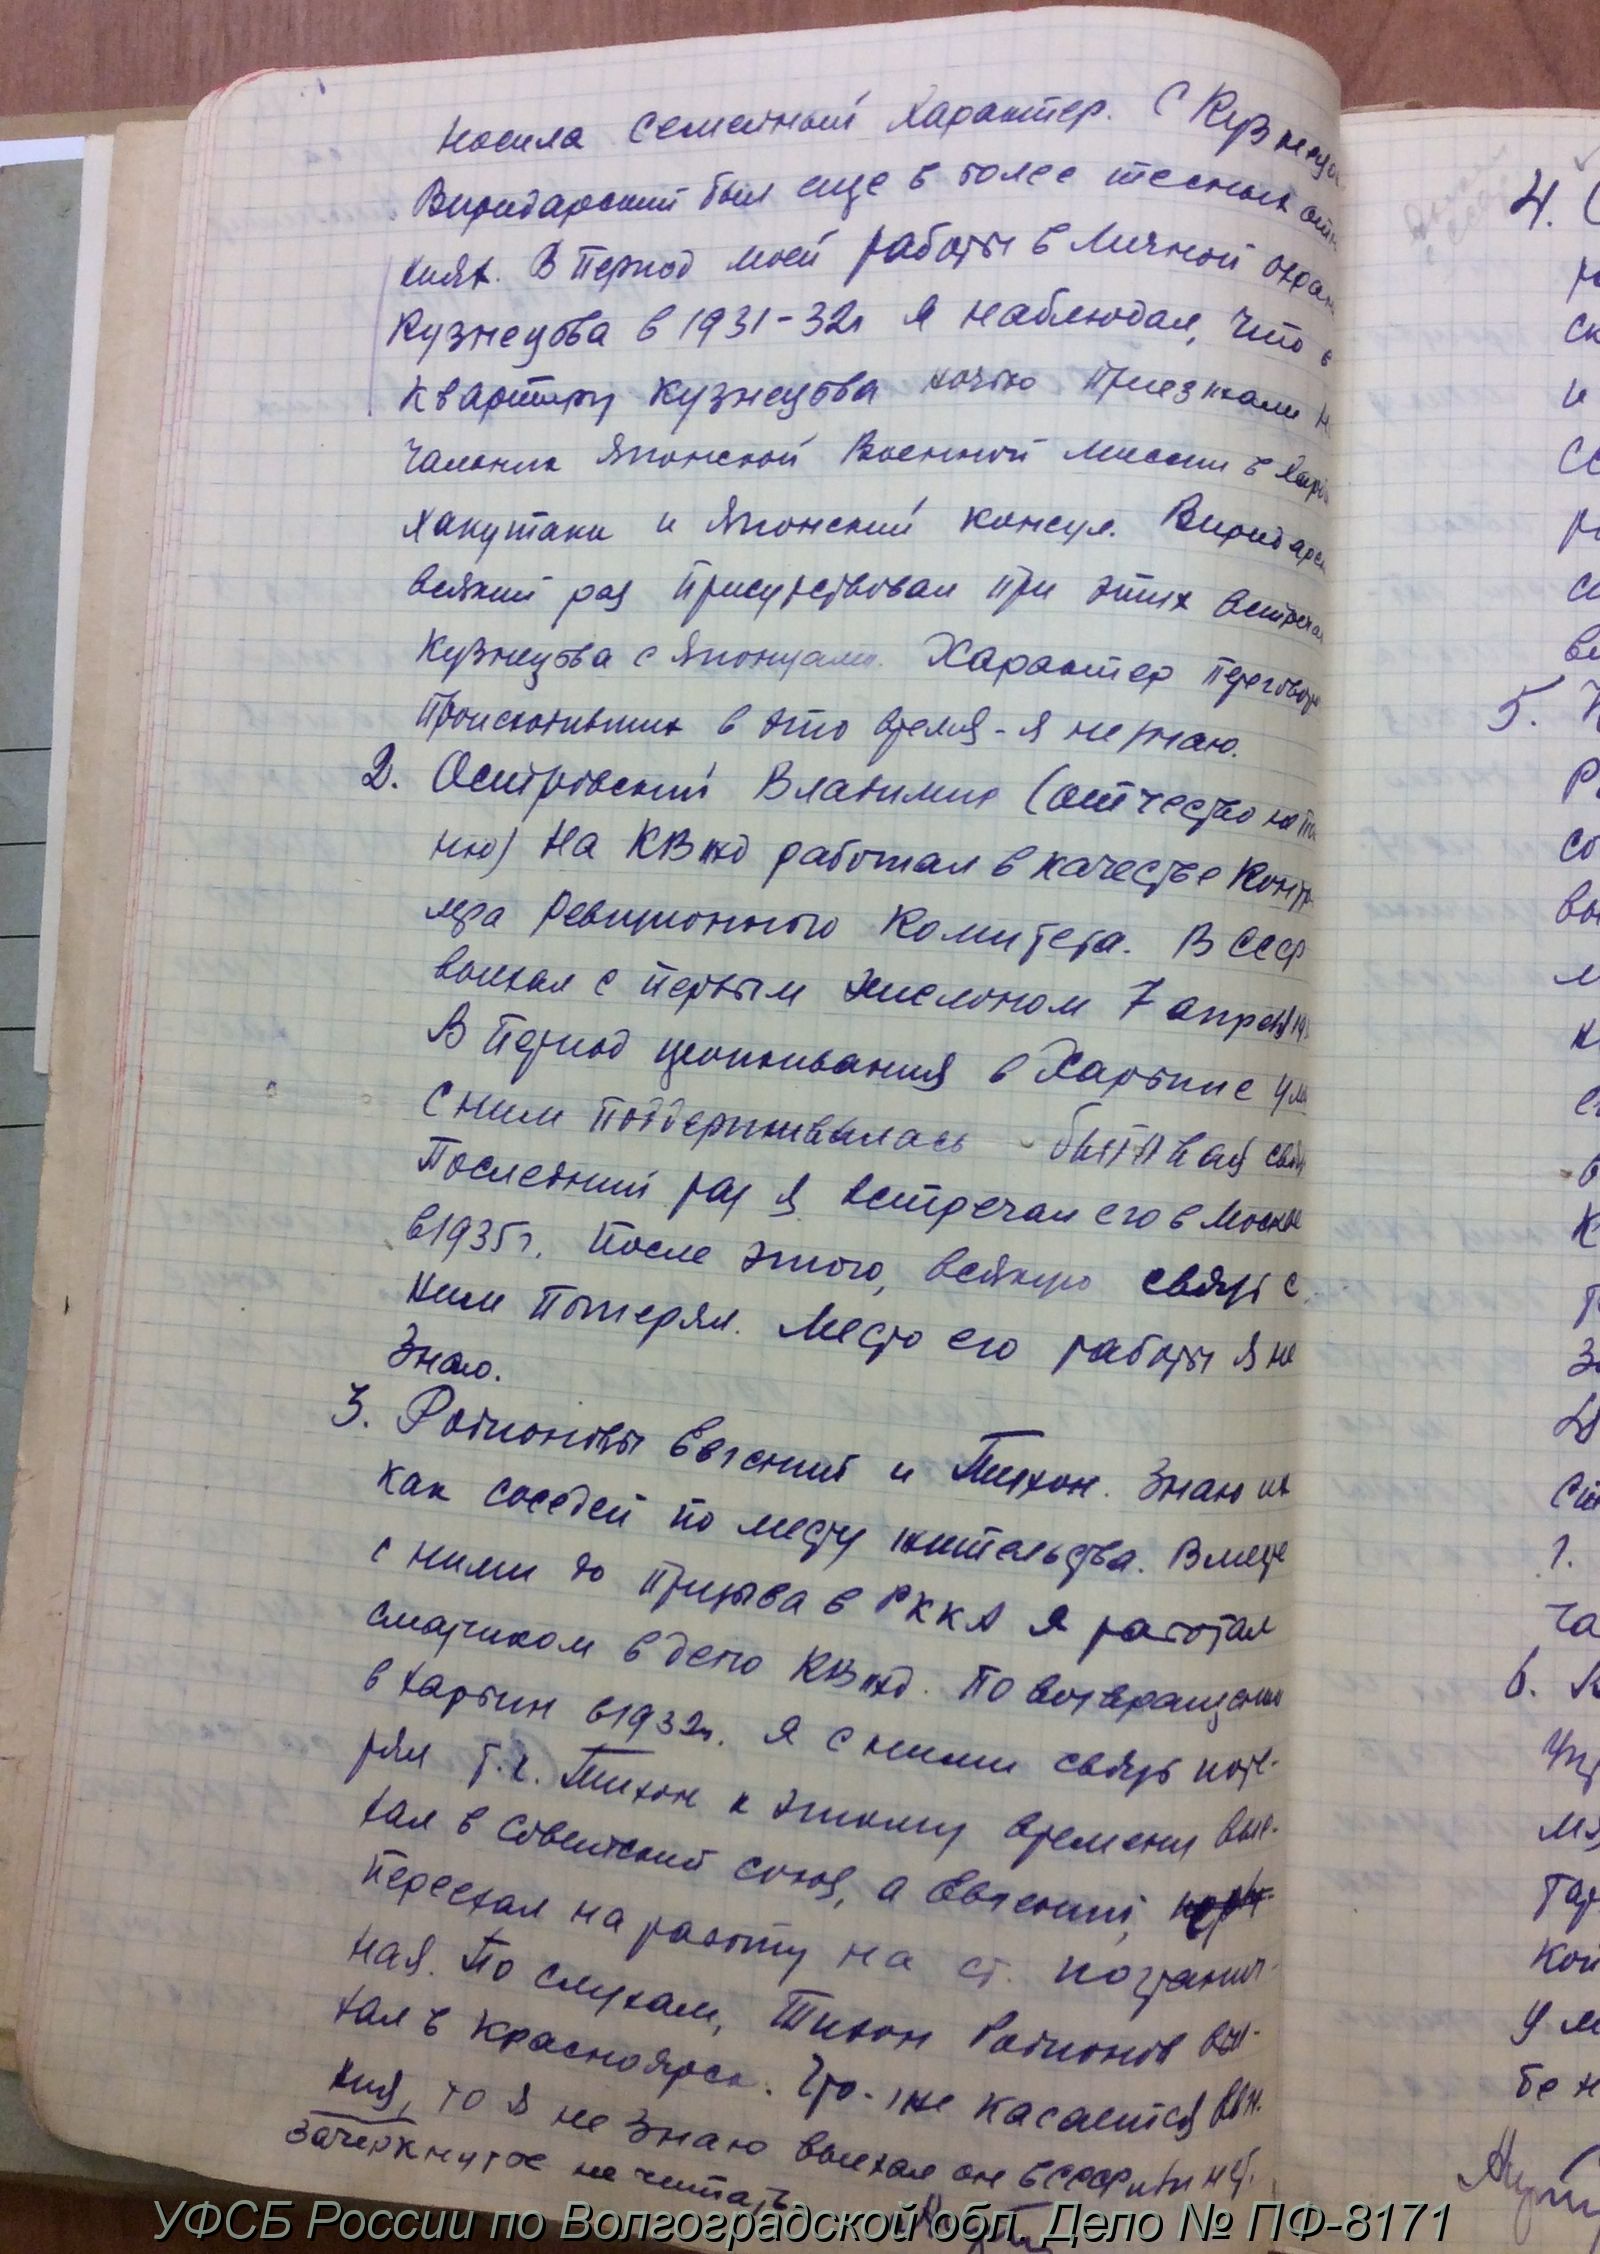 носила семейный характер. С Кузнецо
Виридарский был еще в более тесных отн
ниях. В период моей работы в личной охран
Кузнецова в 1931-32г я наблюдал, что в
квартиру Кузнецова ночью приезжали н
чальник Японской Военной миссии в Харб
Хакутаки и Японский консул. Виридарск
всякий раз присутствовал при этих встреча
Кузнецова с Японцами. Характер перегово
происходивших в это время - я не знаю.
2. Островский Владимир (отчество не по
ню) На КВжд работал в качестве контр
лера Ревизионного Комитета. В СССР
выехал с первым эшелоном 7 апреля 19
В период проживания в Харбине у мо
с ним поддерживалась бытовая связ
Последний раз я встречал его в Москве
в 1935г. После этого, всякую связь с
ним потерял. Место его работы я не
знаю.
3. Родионовы Евгений и Тихон. Знаю их
как соседей по месту жительства. Вместе
с ними до призыва в РККА я работал
смазчиком в депо КВжд. По возвращению
в Харбин в 1932г. я с ними связь поте-
рял т.к. Тихон к этому времени вые-
хал в Советский союз, а Евгений,
переехал на работу на ст. погранич-
ная. По слухам, Тихон Родионов вые-
хал в Красноярск. Что-же касается Евге-
ния, то я не знаю выехал он в СССР или нет.
Зачеркнутое не читать
4. С
5.
6.
УФСБ России по Волгоградской обл. Дело № ПФ-8171